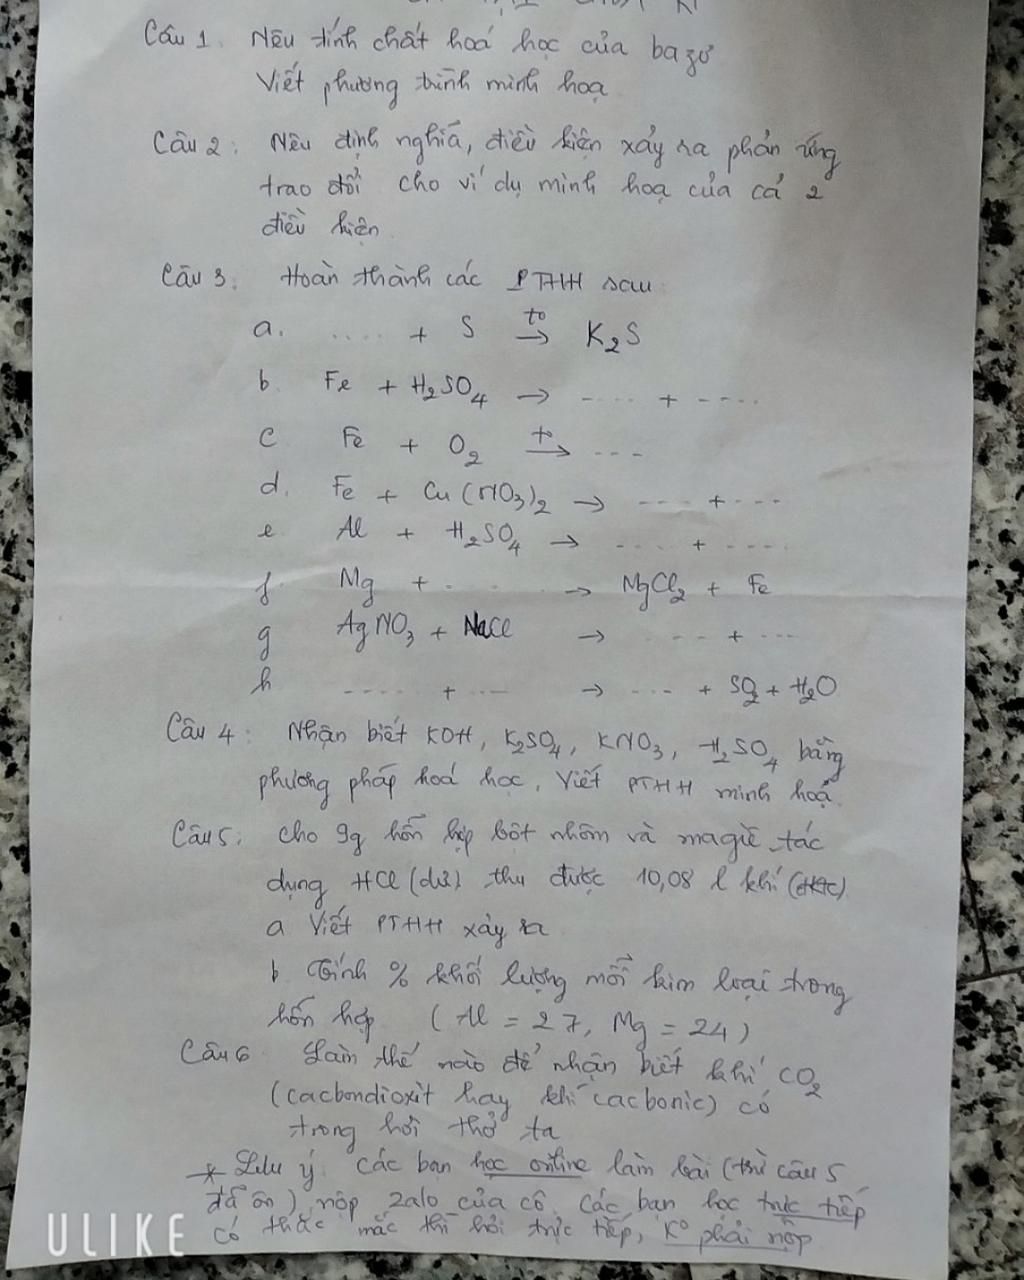 Câu 1. Nêu tính chất hoá học của bazơ
Viết phương trình minh hoạ
Câu 2: Nêu định nghĩa, điều kiện xảy ra phản ứng
trao đổi cho ví dụ minh hoạ của cả 2
điều kiện.
Câu 3. Hoàn thành các PTHH sau
a. .... + S t° → K₂S
b. Fe + H₂SO₄ → ..... + .....
c Fe + O₂ t° → ...
d. Fe + Cu(NO₃)₂ → ..... + ....
e. Al + H₂SO₄ → ..... + .....
f. Mg + ..... → MgCl₂ + Fe
g AgNO₃ + NaCl → .... + ...
h ..... + .... → .... + SO₂ + H₂O
Câu 4: Nhận biết KOH, K₂SO₄, KNO₃, H₂SO₄ bằng
phương pháp hoá học. Viết PTHH minh hoạ.
Câu 5: Cho 9g hỗn hợp bột nhôm và magiê tác
dụng HCl (dư) thu được 10,08 l khí (đktc)
a Viết PTHH xảy ra
b. Tính % khối lượng mỗi kim loại trong
hỗn hợp (Al = 27, Mg = 24)
Câu 6 Làm thế nào để nhận biết khí CO₂
(cacbondioxit hay khí cacbonic) có
trong hơi thở ta
* Lưu ý các bạn học online làm bài (trừ câu 5
đã ôn) nộp zalo của cô. Các bạn học trực tiếp
có thắc mắc thì hỏi trực tiếp, K° phải nộp
ULIKE